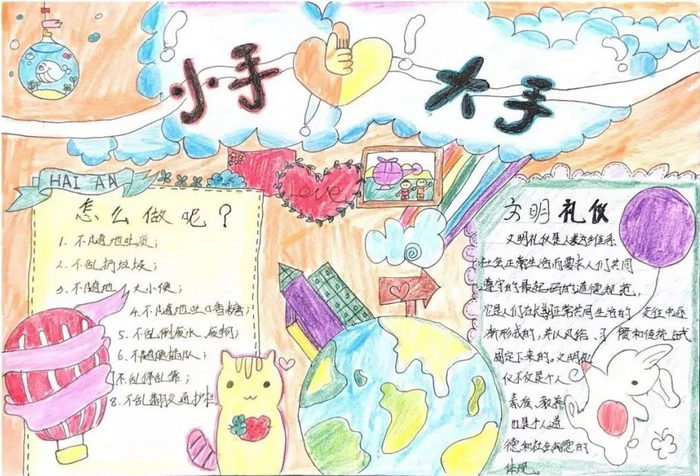 小手 大手
HAI AN
Love
怎么做呢？
1. 不随地吐痰；
2. 不乱扔垃圾；
3. 不随地 大小便；
4. 不随地吐口香糖；
5. 不乱倒废水
6. 不随便插队；
不乱停乱靠；
8. 不乱翻交通护栏
文明礼仪
文明礼仪是人类为维系
社会正常生活而要求人们共同
遵守的最起码的道德规范，
它是人们在长期正常共同生活的 交往中逐
新形成的，并以风俗、习 惯和传统
固定下来的。文明礼
仪不仅是个人
素质、教养
也是个人道
德和社会公德的
体现。